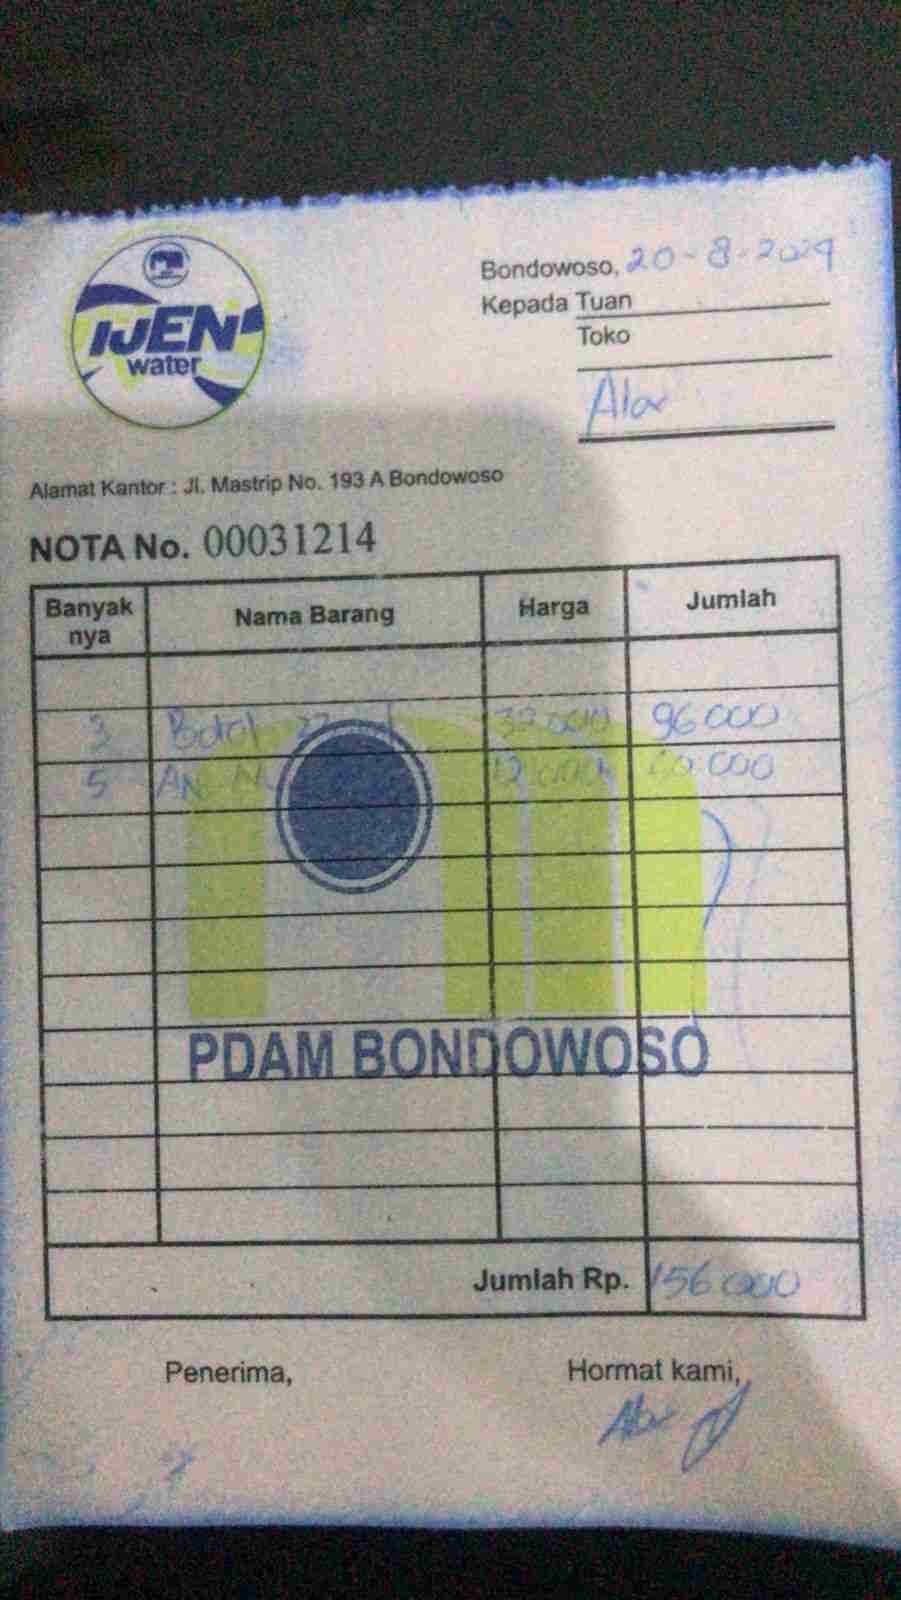 IJEN
water
Bondowoso, 20-8-2024
Kepada Tuan
Toko
Alamat Kantor : Jl. Mastrip No. 193 A Bondowoso
NOTA No. 00031214
Banyak nya Nama Barang Harga Jumlah
3 Botol 32.000 96.000
5 12.000 60.000
PDAM BONDOWOSO
Jumlah Rp. 156.000
Penerima, Hormat kami,